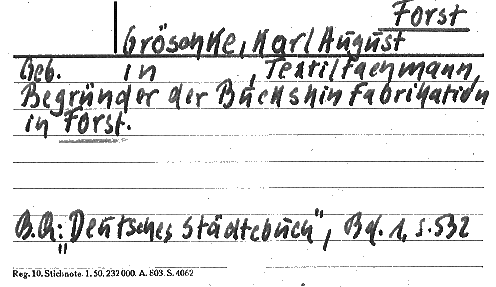 Forst
Gröschke, Karl August
Geb. in , Textilfachmann,
Begründer der Buckskinfabrikation
in Forst.
B.Qu.: "Deutsches Städtebuch", Bd. 1, S. 532
Reg. 10. Stichnote. 1. 50. 232000. A. 803. S. 4062